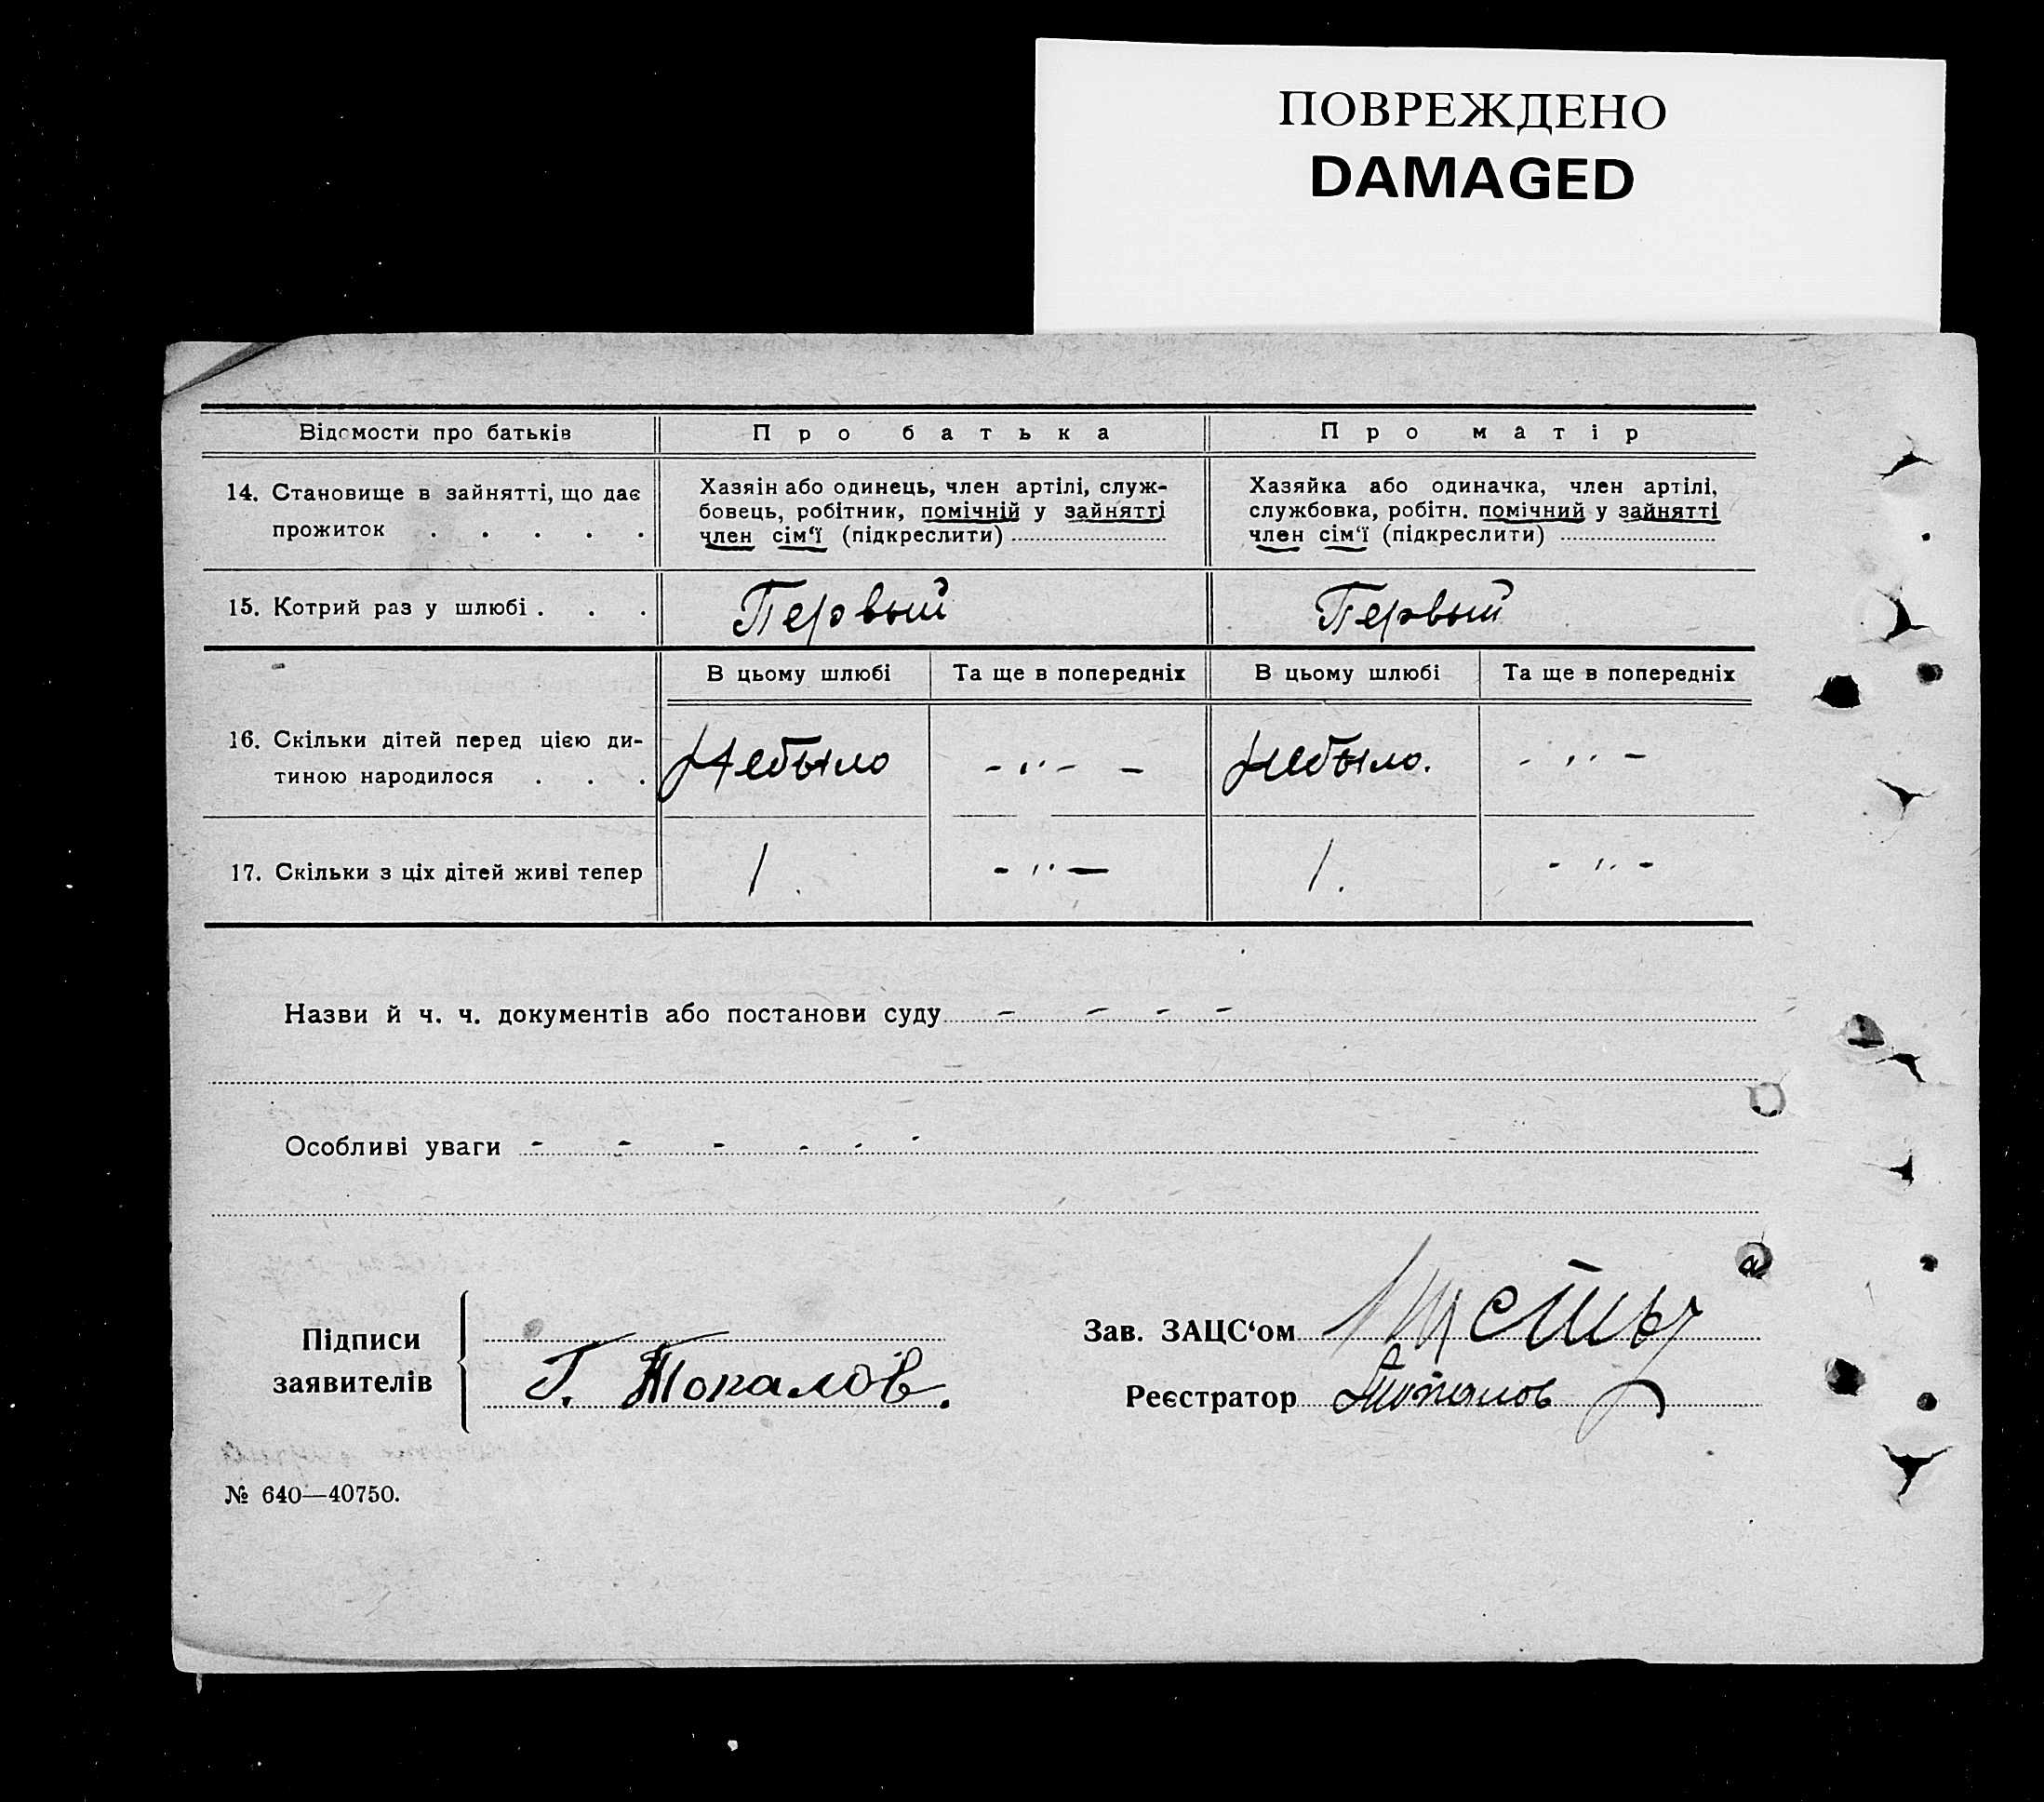 ПОВРЕЖДЕНО
DAMAGED
Відомости про батьків
Про батька
Про матір
14. Становище в зайнятті, що дає
прожиток . . . . .
Хазяїн або одинець, член артілі, служ-
бовець, робітник, помічній у зайнятті
член сім‘ї (підкреслити)
Хазяйка або одиначка, член артілі,
службовка, робітн. помічний у зайнятті
член сім‘ї (підкреслити)
15. Котрий раз у шлюбі . . .
Первый
Первый
В цьому шлюбі
Та ще в попередніх
В цьому шлюбі
Та ще в попередніх
16. Скільки дітей перед цією ди-
тиною народилося . . .
Небыло
- " - -
Небыло.
- " -
17. Скільки з ціх дітей живі тепер
1.
- " -
1.
- " -
Назви й ч. ч. документів або постанови суду - - - -
Особливі уваги - - - - - -
Підписи
заявителів
Г. Токалов.
Зав. ЗАЦС‘ом
Реєстратор
№ 640—40750.